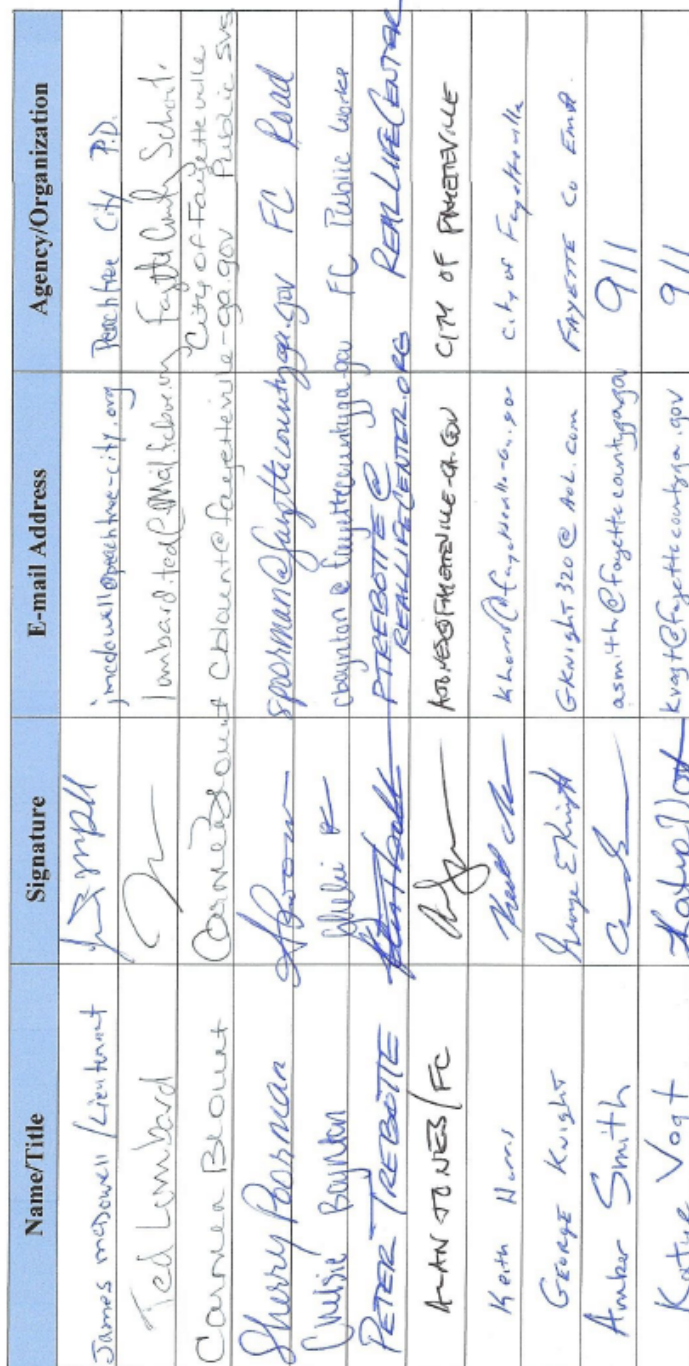 Name/Title Signature E-mail Address Agency/Organization
James McDowell / Lieutenant jmcdowell@peachtree-city.org Peachtree City P.D.
Ted Lombard lombard.ted@mail.fcboe.org Fayette County School
Carmen Blount Carmen Blount cblount@fayetteville-ga.gov City of Fayetteville Public SVS
Sherry Poorman spoorman@fayettecountyga.gov FC Road
Chelsie Boynton cboynton@fayettecountyga.gov FC Public Works
PETER TREBOTTE PTREBOTTE@ REALLIFECENTER.ORG REAL LIFE CENTER
ALAN JONES/FC AJONES@FAYETTEVILLE-GA.GOV CITY OF FAYETTEVILLE
Keith Harris kharris@fayetteville-ga.gov City of Fayetteville
GEORGE Knight George E Knight GKnight320@AOL.com FAYETTE Co EmA
Amber Smith asmith@fayettecountyga.gov 911
Katye Vogt Katye Vogt kvogt@fayettecountyga.gov 911